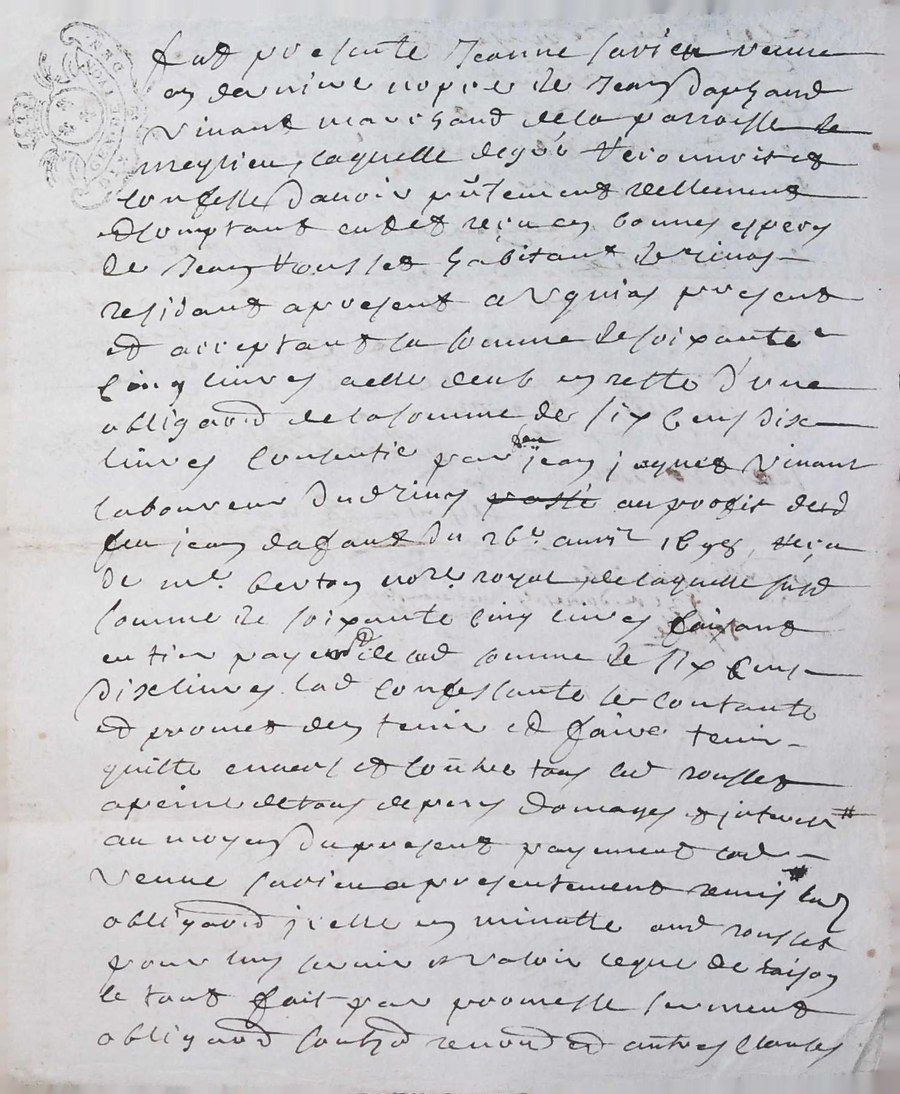 fut presente Jeanne veuve
en derniere nopce de Jean
vivant marchand de la parroisse de
meylieu laquelle de gré Reconnoist et
confesse d'avoir pñtement reellement
et comptant eu et reçu en bonnes especes
de Jean Rousset habitant de
residant a present a present
et acceptant la somme de soixante
cinq livres a elle deub en reste d'une
obligaōn de la somme de six cens dix
livres consentie par feu jean jaques vivant
laboureur dud passé au profit dud
feu jean du 26e. avril reçu
de me. notre. royal de laquelle susd
somme de soixante cinq livres faisant
entier payemt de lad somme de six cens
dix livres lad confessante se contante
et promet d'en tenir et faire tenir
quitte envers et contre tous led rousset
a peine de tous depens domages et jnterest #
au moyen du present payement lad
veuve a presentement remis # lad
obligaōn jcelle en minutte aud rousset
pour luy servir et valoir ce que de raison
le tout fait par promesse serment
obligaōn renonō et autres clauses